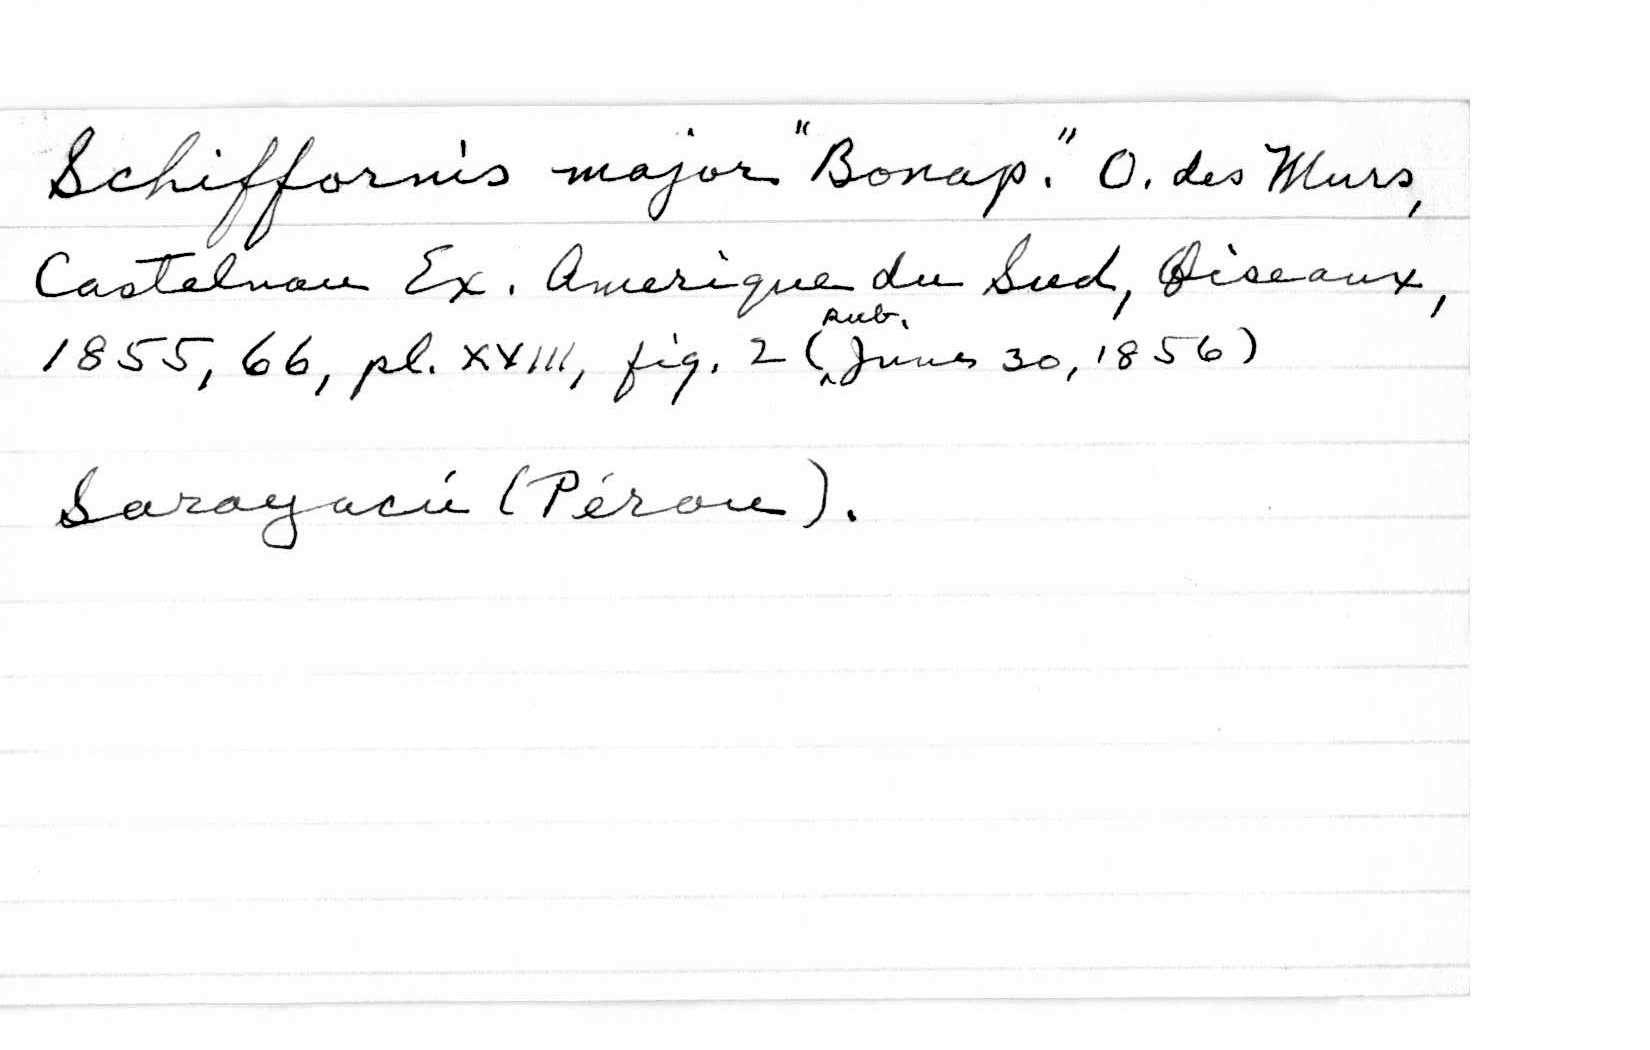 Schiffornis major "Bonap." O. des Murs,
Castelnau Ex. Amerique du Sud, Oiseaux,
1855, 66, pl. XXIII, fig. 2 (pub. June 30, 1856)
Sarayacú (Pérou).